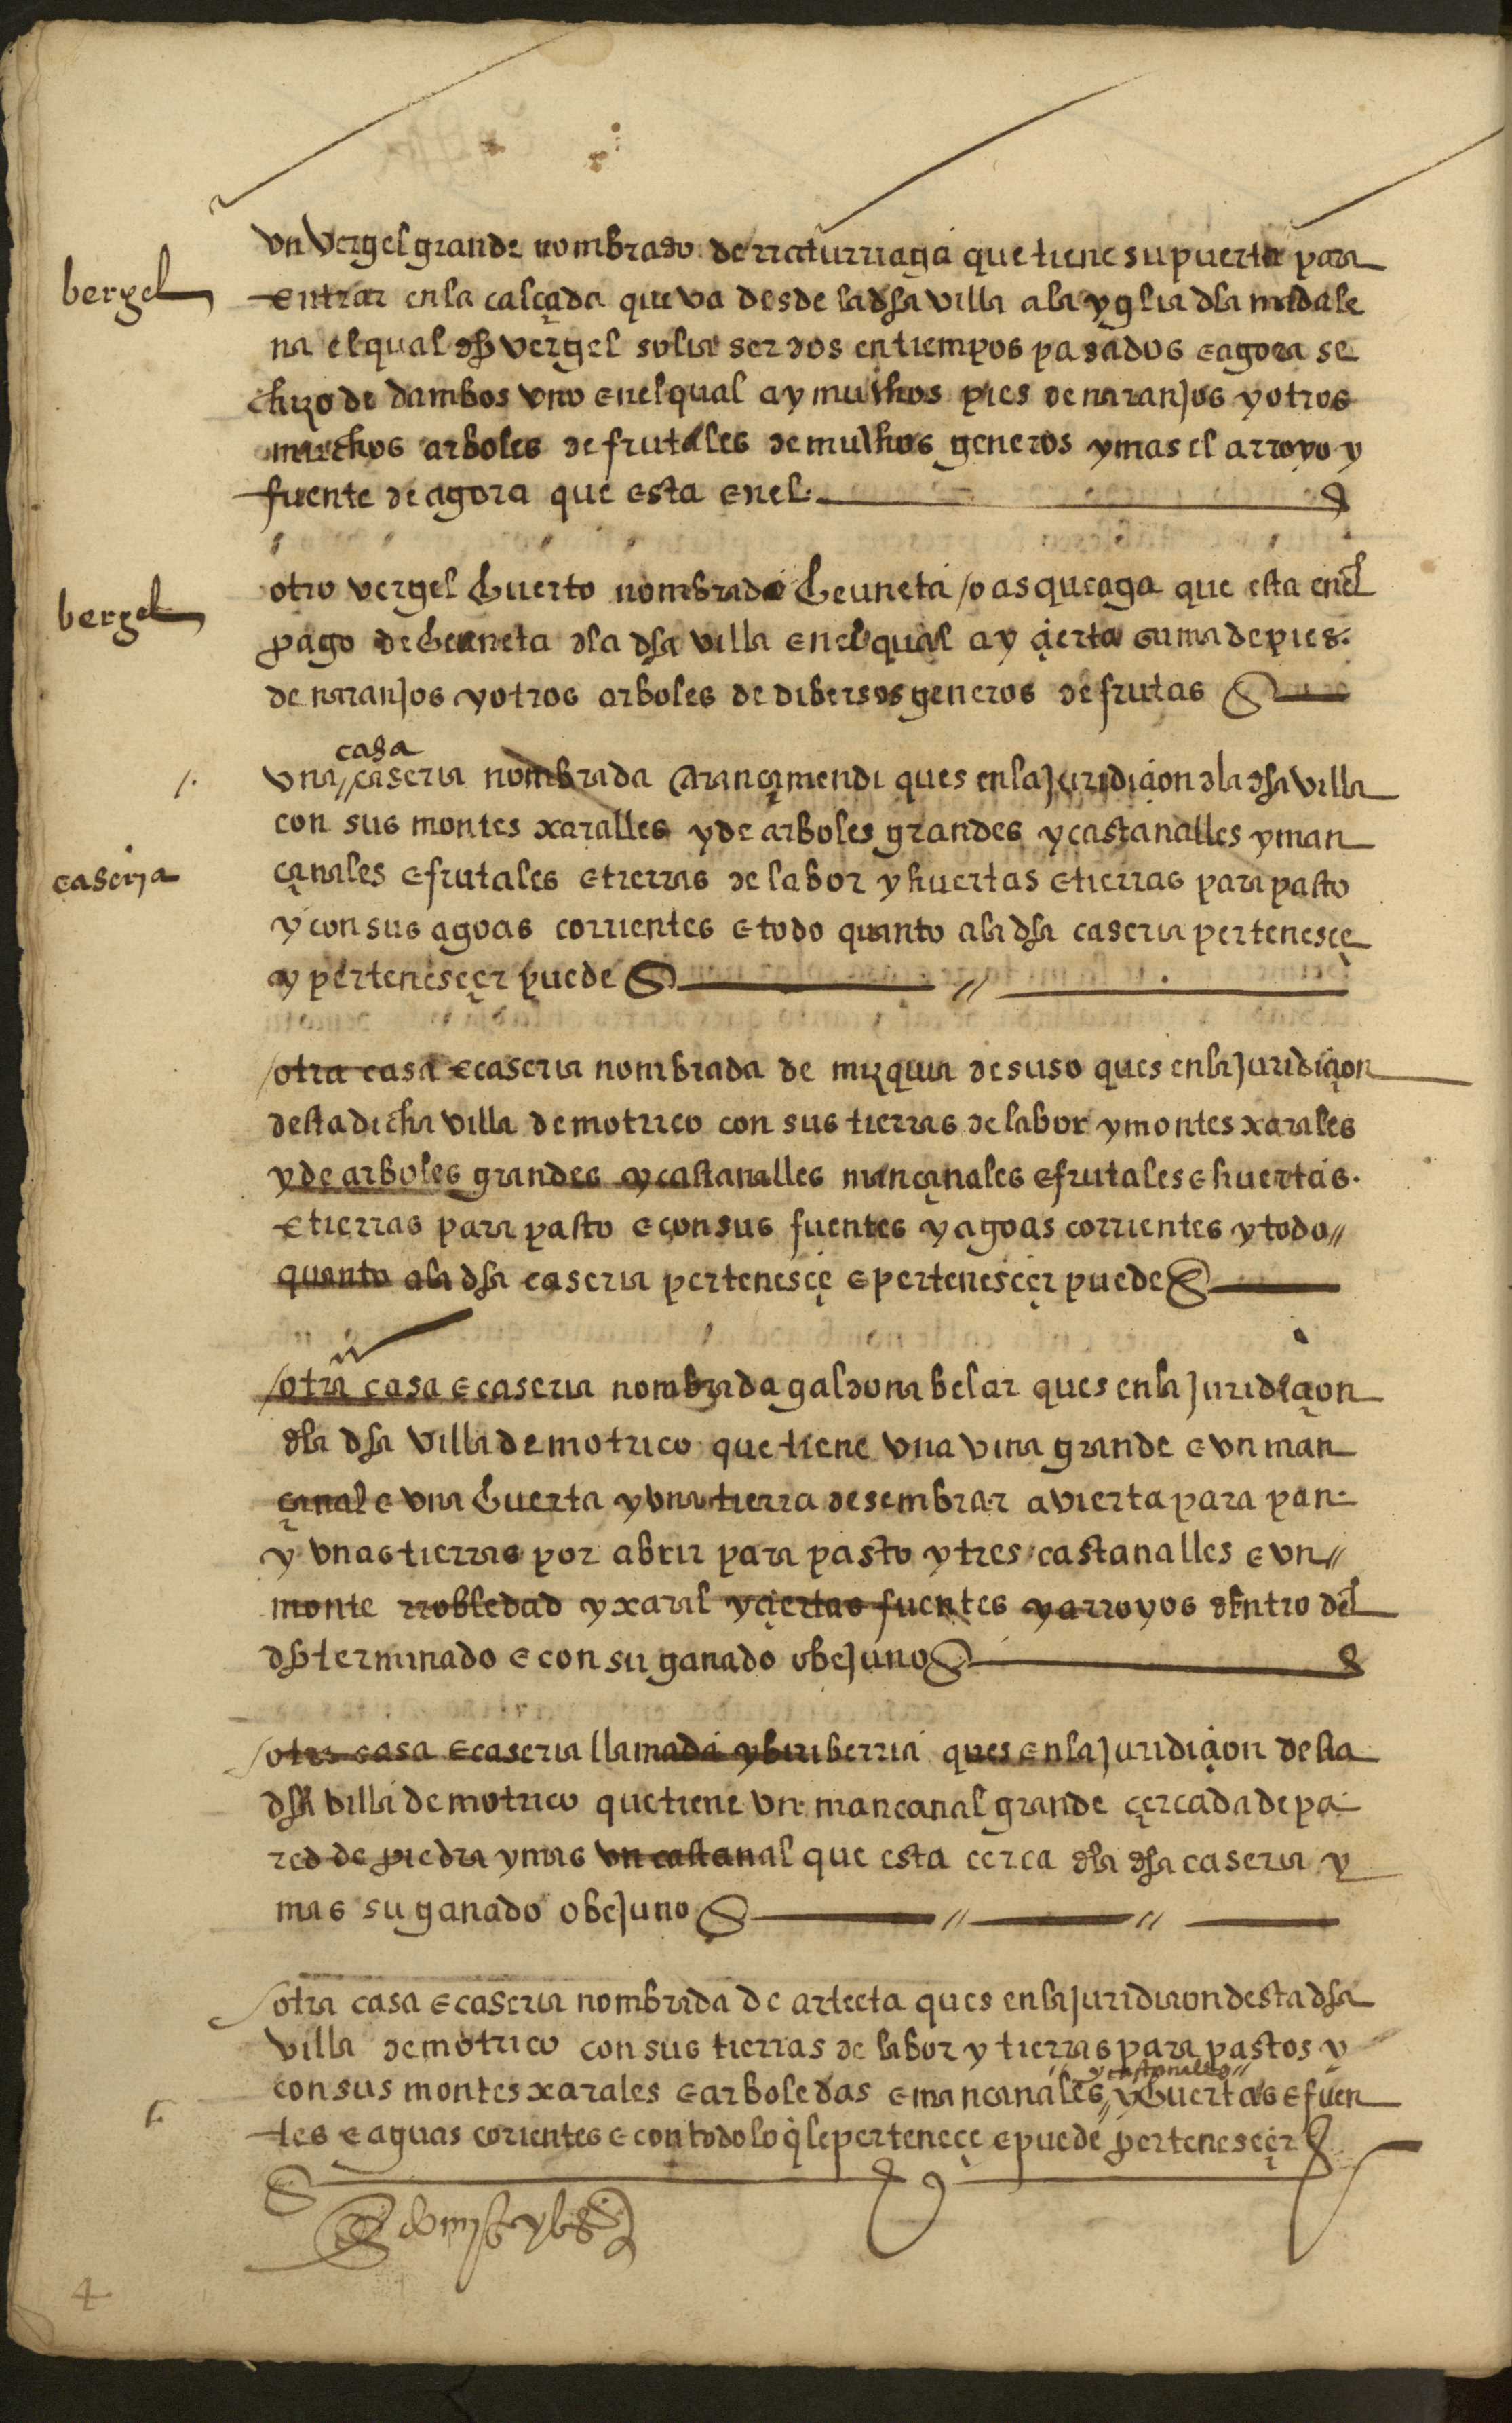 bergel
vn vergel grande nombrado de rraturriaga que tiene su puerta para
entrar en la calçada que va desde la dha villa a la yglia dla madale
na el qual dho vergel solia ser dos en tiempos pasados e agora se
hizo de dambos vno en el qual ay muchos pies de naranjos y otros
muchos arboles de frutales de muchos generos y mas el arroyo y
fuente de agora que esta en el
bergel
otro vergel huerto nombrado heuneta / o asqueaga que esta enel
pago de heuneta dla dha villa en el qual ay çierta suma de pies
de naranjos y otros arboles de dibersos generos de frutas
casa
vna // caseria nombrada arançamendi ques en la juridiçion dla dha villa
con sus montes xaralles y de arboles grandes y castanalles y man
caserja
çanales e frutales e tierras de labor y huertas e tierras para pasto
y con sus agoas corrientes e todo quanto a la dha caseria pertenesçe
y pertenesçer puede
otra casa e caseria nombrada de mizquia de suso ques en la juridiçion
desta dicha villa de motrico con sus tierras de labor y montes xarales
y de arboles grandes y castanalles mançanales e frutales e huertas
e tierras para pasto e con sus fuentes y agoas corrientes y todo //
quanto a la dha caseria pertenesçe e pertenesçer puede
otra casa e caseria nombrada galdona belar ques en la juridiçion
dla dha villa de motrico que tiene vna vina grande e vn man
çanal e vna huerta y vna tierra de sembrar avierta para pan
y vnas tierras por abrir para pasto y tres castanalles e vn //
monte rrobledad y xaral y çiertas fuentes y arroyos dentro del
dho terminado e con su ganado obejuno
otra casa e caseria llamada ybiriberria ques en la juridiçion desta
dha villa de motrico que tiene vn mancanal grande çercada de pa
red de piedra y mas vn castanal que esta cerca dla dha caseria y
mas su ganado obejuno
otra casa e caseria nombrada de arteeta ques en la juridicion desta dha
villa de motrico con sus tierras de labor y tierras para pastos y
y castanalles //
con sus montes xarales e arboledas e mancanales // y huertas e fuen
tes e aguas corientes e con todo lo q̃ le perteneçe e puede pertenesçer
4